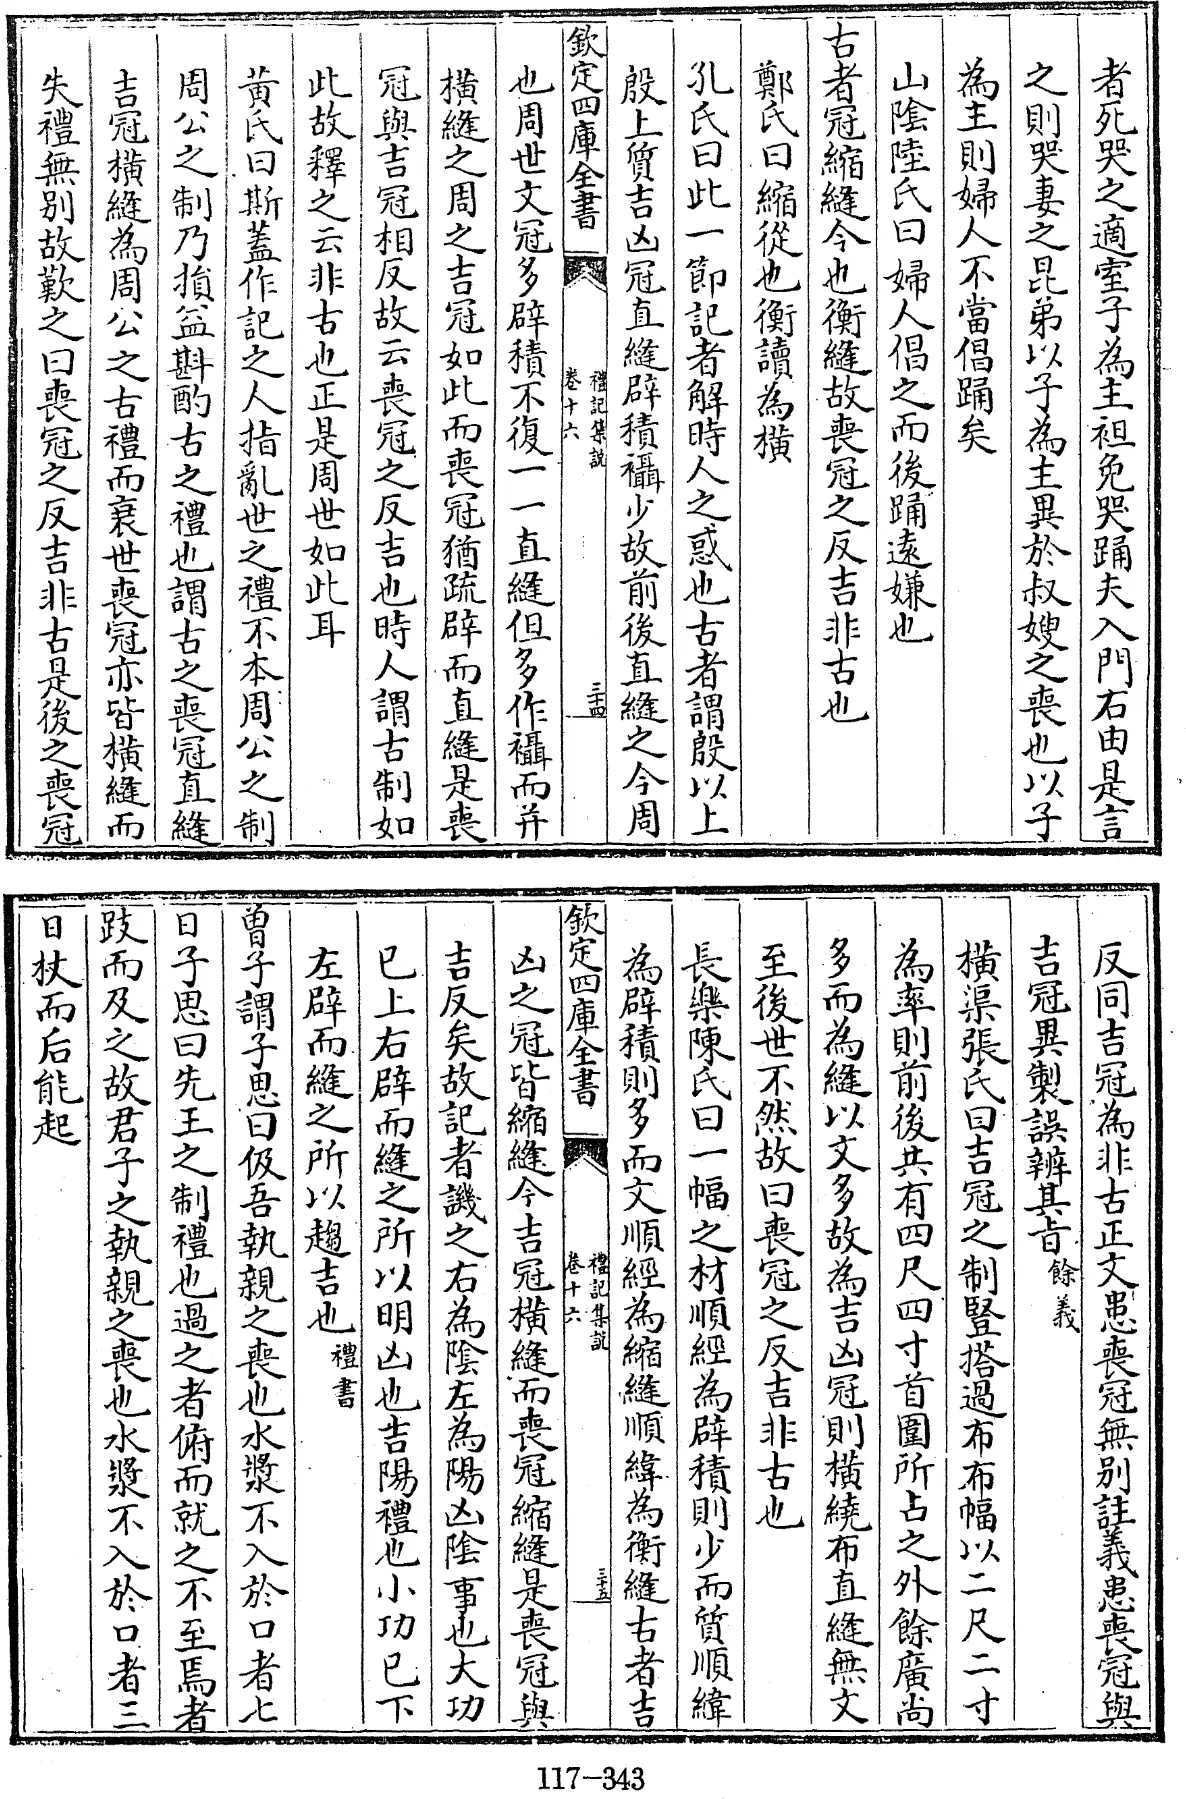 者死哭之適室子為主袒免哭踊夫入門右由是言
之則哭妻之昆弟以子為主異於叔嫂之喪也以子
為主則婦人不當倡踊矣
山陰陸氏曰婦人倡之而後踊遠嫌也
古者冠縮縫今也衡縫故喪冠之反吉非古也
鄭氏曰縮從也衡讀為橫
孔氏曰此一節記者解時人之惑也古者謂殷以上
殷上質吉凶冠直縫辟積襵少故前後直縫之今周
欽定四庫全書
禮記集説
卷十六
三十四
也周世文冠多辟積不復一一直縫但多作襵而并
橫縫之周之吉冠如此而喪冠猶疏辟而直縫是喪
冠與吉冠相反故云喪冠之反吉也時人謂古制如
此故釋之云非古也正是周世如此耳
黃氏曰斯蓋作記之人指亂世之禮不本周公之制
周公之制乃損益斟酌古之禮也謂古之喪冠直縫
吉冠橫縫為周公之古禮而衰世喪冠亦皆橫縫而
失禮無別故歎之曰喪冠之反吉非古是後之喪冠
反同吉冠為非古正文患喪冠無別註義患喪冠與
吉冠異製誤辨其旨餘義
橫渠張氏曰吉冠之制豎搭過布布幅以二尺二寸
為率則前後共有四尺四寸首圍所占之外餘廣尚
多而為縫以文多故為吉凶冠則橫繞布直縫無文
至後世不然故曰喪冠之反吉非古也
長樂陳氏曰一幅之材順經為辟積則少而質順緯
為辟積則多而文順經為縮縫順緯為衡縫古者吉
欽定四庫全書
禮記集説
卷十六
三十五
凶之冠皆縮縫今吉冠橫縫而喪冠縮縫是喪冠與
吉反矣故記者譏之右為陰左為陽凶陰事也大功
已上右辟而縫之所以明凶也吉陽禮也小功已下
左辟而縫之所以趨吉也禮書
曾子謂子思曰伋吾執親之喪也水漿不入於口者七
日子思曰先王之制禮也過之者俯而就之不至焉者
跂而及之故君子之執親之喪也水漿不入於口者三
日杖而后能起
117-343